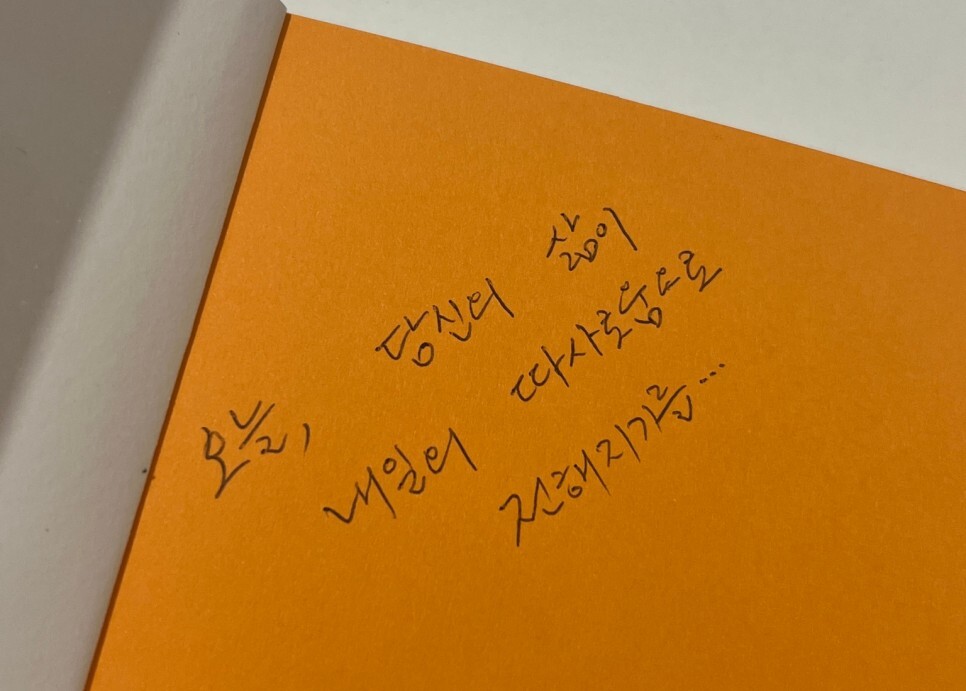 오늘, 당신의 삶이
내일의 따사로움으로
전해지기를...